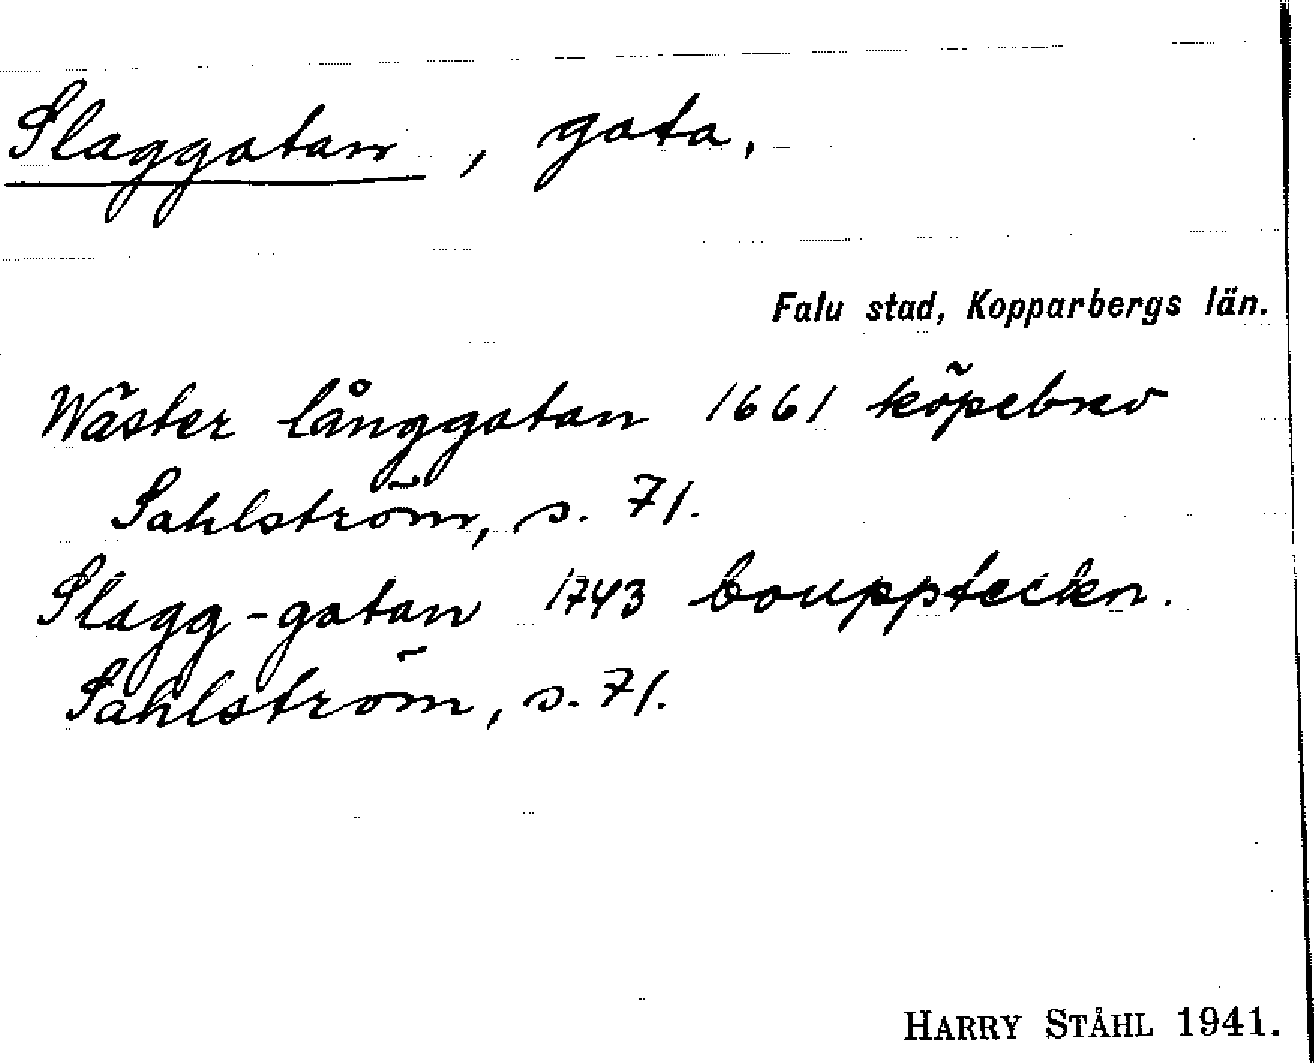 Slaggatan, gata.
Falu stad, Kopparbergs län.
Wäster långgatan 1661 köpebrev
Sahlström, s. 71.
Slagg-gatan 1743 bouppteckn.
Sahlström, s. 71.
HARRY STÅHL 1941.